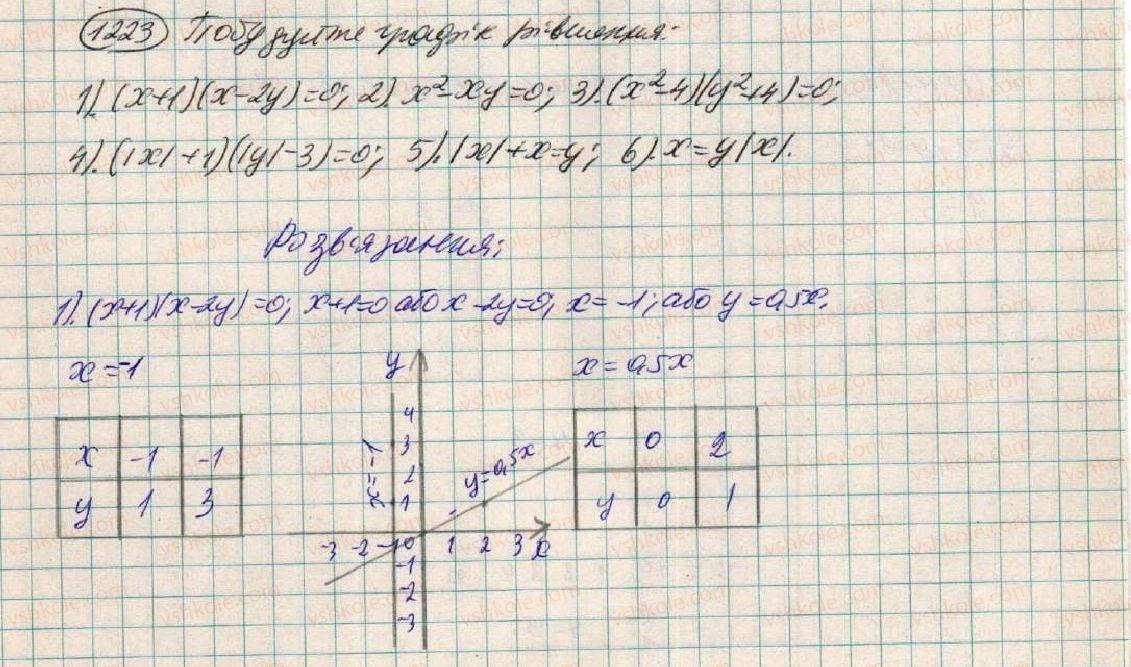 1223 Побудуйте графік рівняння:
1). (x+1)(x-2y)=0; 2). x²-xy=0; 3). (x²-4)(y²+4)=0;
4). (|x|+1)(|y|-3)=0; 5). |x|+x=y; 6). x=y|x|.
Розв'язання:
1). (x+1)(x-2y)=0; x+1=0 або x-2y=0; x=-1; або y=0,5x.
x=-1
x -1 -1
y 1 3
y
4
3
2
1
x=-1
y=0,5x
-3 -2 -1 0 1 2 3 x
-1
-2
-3
x=0,5x
x 0 2
y 0 1
vshkole.com